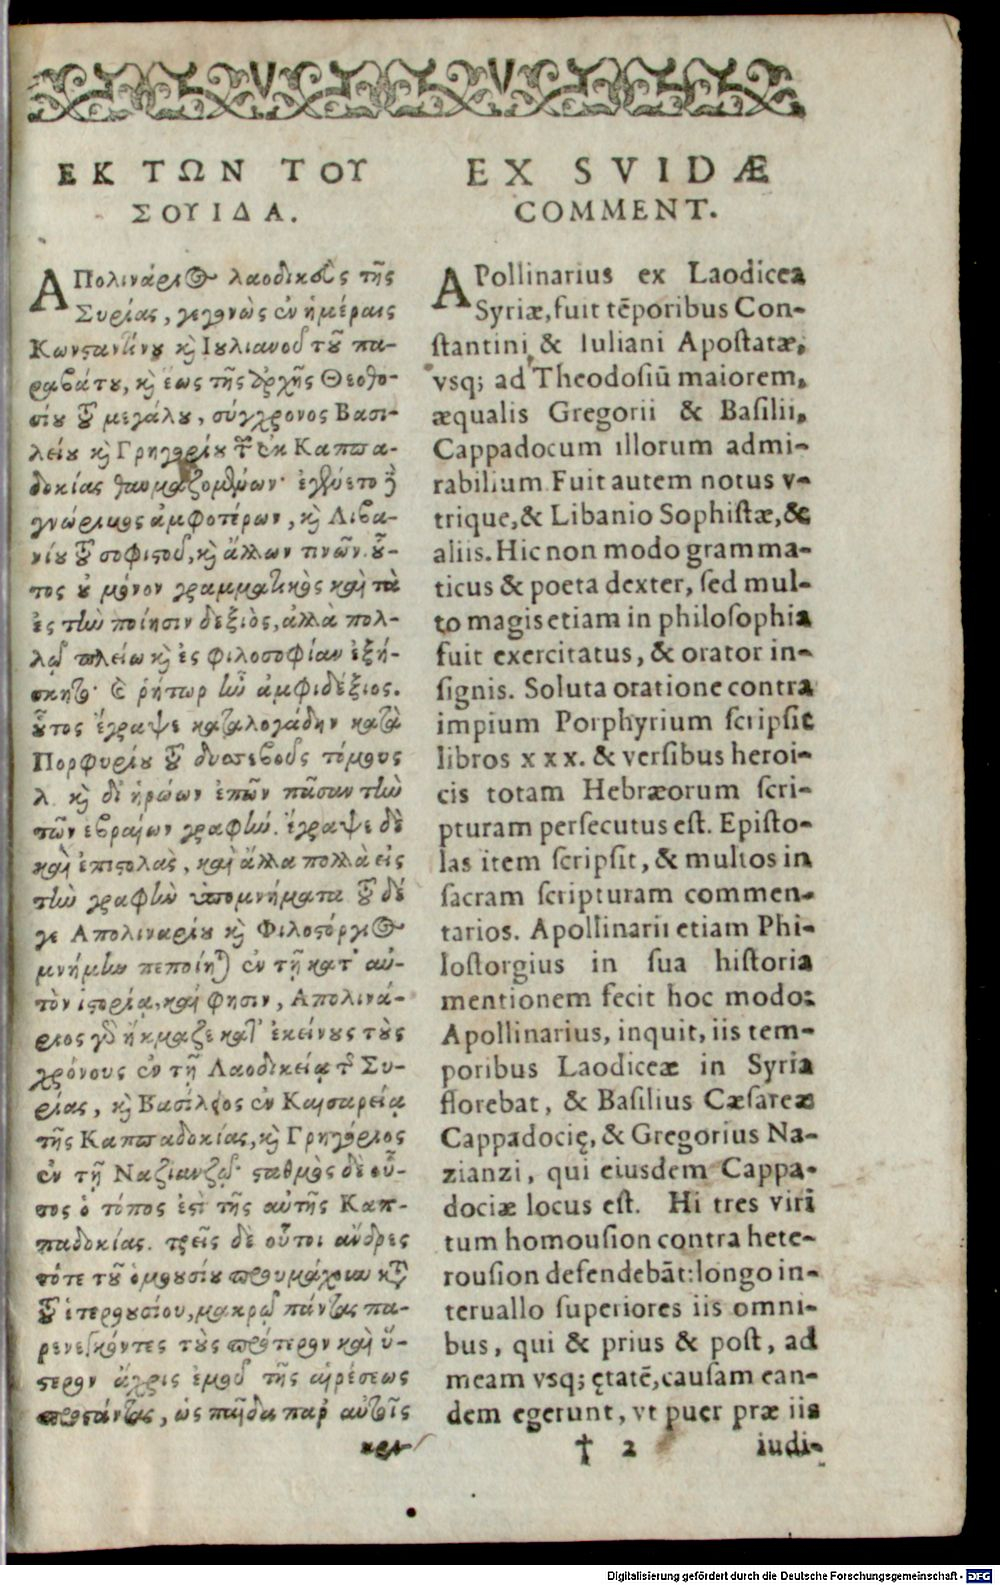 ΕΚ ΤΩΝ ΤΟΥ
ΣΟΥΙΔΑ.
ΑΠολινάριος λαοδικεὺς τῆς
Συρίας, γεγονὼς ἐν ἡμέραις
Κωνσαντίνου κὶ Ιουλιανοῦ τοῦ πα-
ραβάτου, κὶ ἕως τῆς ἀρχῆς Θεοδο-
σίου τοῦ μεγάλου, σύγχρονος Βασι-
λείου κὶ Γρηγορίου τῶν ἐκ Καππα-
δοκίας θαυμαζομένων· ἐγένετο δὲ
γνώριμος ἀμφοτέρων, κὶ Λιβα-
νίου τοῦ σοφιστοῦ, κὶ ἄλλων τινῶν. οὗ-
τος οὐ μόνον γραμματικὸς καὶ τὰ
ἐς τὴν ποίησιν δεξιὸς, ἀλλὰ πολ-
λῷ πλείω κὶ ἐς φιλοσοφίαν ἐξή-
σκητο· καὶ ῥήτωρ ἦν ἀμφιδέξιος.
οὗτος ἔγραψε καταλογάδην κατὰ
Πορφυρίου τοῦ δυσσεβοῦς τόμους
λ. κὶ δι' ἡρώων ἐπῶν πᾶσαν τὴν
τῶν ἑβραίων γραφήν. ἔγραψε δὲ
καὶ ἐπιστολὰς, καὶ ἄλλα πολλὰ εἰς
τὴν γραφὴν ὑπομνήματα. τοῦ δέ
γε Απολιναρίου κὶ Φιλοστόργιος
μνήμην πεποίηται ἐν τῇ κατ' αὐ-
τὸν ἱστορίᾳ, καὶ φησιν, Απολινά-
ριος γὰρ ἤκμαζε κατ' ἐκείνους τοὺς
χρόνους ἐν τῇ Λαοδικείᾳ τῆς Συ-
ρίας, κὶ Βασίλειος ἐν Καισαρείᾳ
τῆς Καππαδοκίας, κὶ Γρηγόριος
ἐν τῇ Ναζιανζῷ· σταθμὸς δὲ οὗ-
τος ὁ τόπος ἐστὶ τῆς αὐτῆς Καπ-
παδοκίας. τρεῖς δὲ οὗτοι ἄνδρες
τότε τοῦ ὁμοουσίου προυμάχουν κατὰ
τοῦ ἑτεροουσίου, μακρῷ πάντας πα-
ρενεγκόντες τοὺς πρότερον καὶ ὕ-
στερον ἄχρις ἐμοῦ τῆς αἱρέσεως
προστάντας, ὡς παῖδα παρ' αὐτοῖς
κρι-
EX SVIDÆ
COMMENT.
APollinarius ex Laodicea
Syriæ, fuit tẽporibus Con-
stantini & Iuliani Apostatæ,
vsq; ad Theodosiũ maiorem,
æqualis Gregorii & Basilii,
Cappadocum illorum admi-
rabilium. Fuit autem notus v-
trique, & Libanio Sophistæ, &
aliis. Hic non modo gramma-
ticus & poeta dexter, sed mul-
to magis etiam in philosophia
fuit exercitatus, & orator in-
signis. Soluta oratione contra
impium Porphyrium scripsit
libros xxx. & versibus heroi-
cis totam Hebræorum scri-
pturam persecutus est. Episto-
las item scripsit, & multos in
sacram scripturam commen-
tarios. Apollinarii etiam Phi-
lostorgius in sua historia
mentionem fecit hoc modo:
Apollinarius, inquit, iis tem-
poribus Laodiceæ in Syria
florebat, & Basilius Cæsareæ
Cappadocię, & Gregorius Na-
zianzi, qui eiusdem Cappa-
dociæ locus est. Hi tres viri
tum homousion contra hete-
rousion defendebãt: longo in-
teruallo superiores iis omni-
bus, qui & prius & post, ad
meam vsq; ętatẽ, causam ean-
dem egerunt, vt puer præ iis
† 2 iudi-
Digitalisierung gefördert durch die Deutsche Forschungsgemeinschaft - DFG